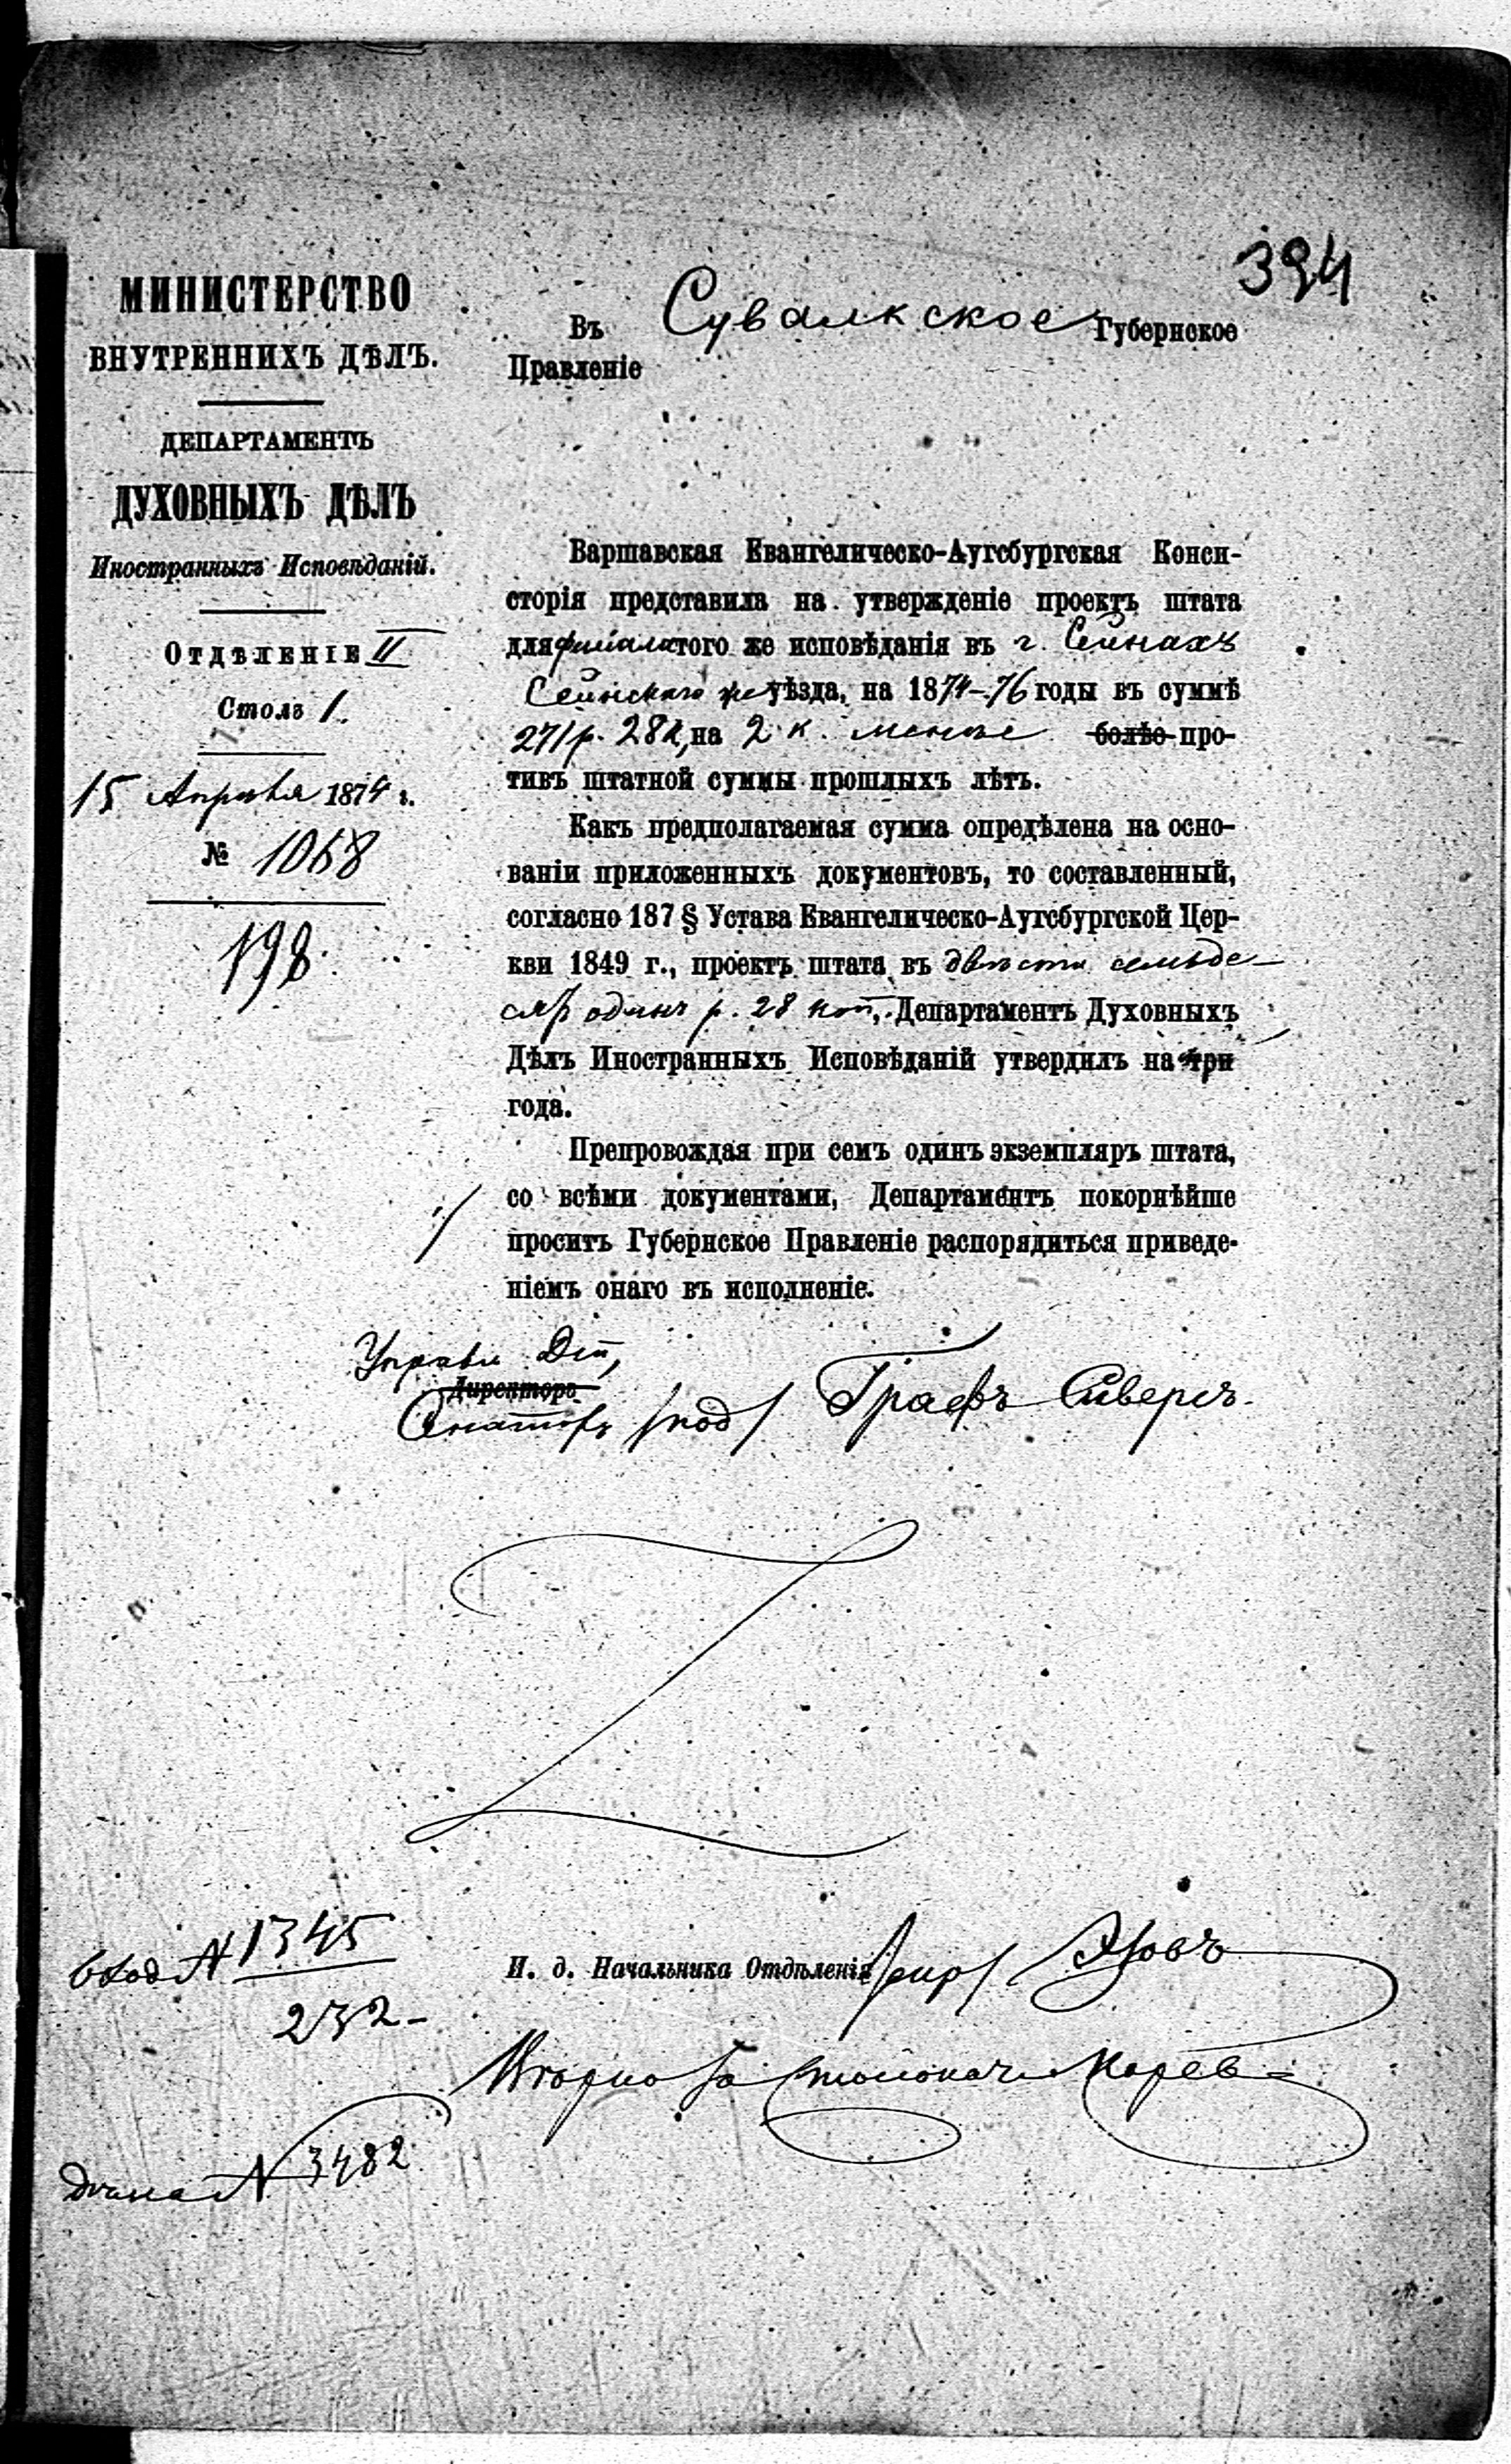 394
МИНИСТЕРСТВО
ВНУТРЕННИХЪ ДѢЛЪ.
ДЕПАРТАМЕНТЪ
ДУХОВНЫХЪ ДѢЛЪ
Иностранныхъ Исповѣданій.
ОТДѢЛЕНІЕ II
Столъ 1.
15 Апрѣля 1874 г.
№ 1068
198.
Въ Сувалкское Губернское
Правленіе
Варшавская Евангелическо-Аугсбургская Конси-
сторія представила на утвержденіе проектъ штата
для филіала того же исповѣданія въ г. Сейнахъ
Сейнскаго же уѣзда, на 1874-76 годы въ суммѣ
271 р. 28 к, на 2 к. менѣе болѣе про-
тивъ штатной суммы прошлыхъ лѣтъ.
Какъ предполагаемая сумма опредѣлена на осно-
ваніи приложенныхъ документовъ, то составленный,
согласно 187 § Устава Евангелическо-Аугсбургской Цер-
кви 1849 г., проектъ штата въ двѣсти семьде-
сятъ одинъ р. 28 коп., Департаментъ Духовныхъ
Дѣлъ Иностранныхъ Исповѣданій утвердилъ на три
года.
Препровождая при семъ одинъ экземпляръ штата,
со всѣми документами, Департаментъ покорнѣйше
проситъ Губернское Правленіе распорядиться приведе-
ніемъ онаго въ исполненіе.
Управл. Деп,
Директоръ
Сенаторъ /под/ Графъ Сиверсъ.
вход № 1345
232
И. д. Начальника Отдѣленія
Столоначальн
№ 3482